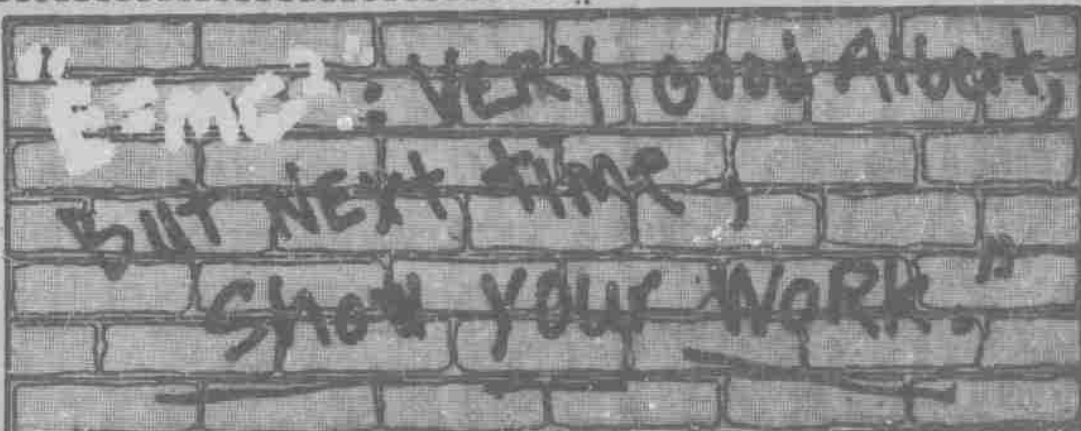 "E=MC²": VERY Good Albert,
BUT NEXT time,
Show your WORK."